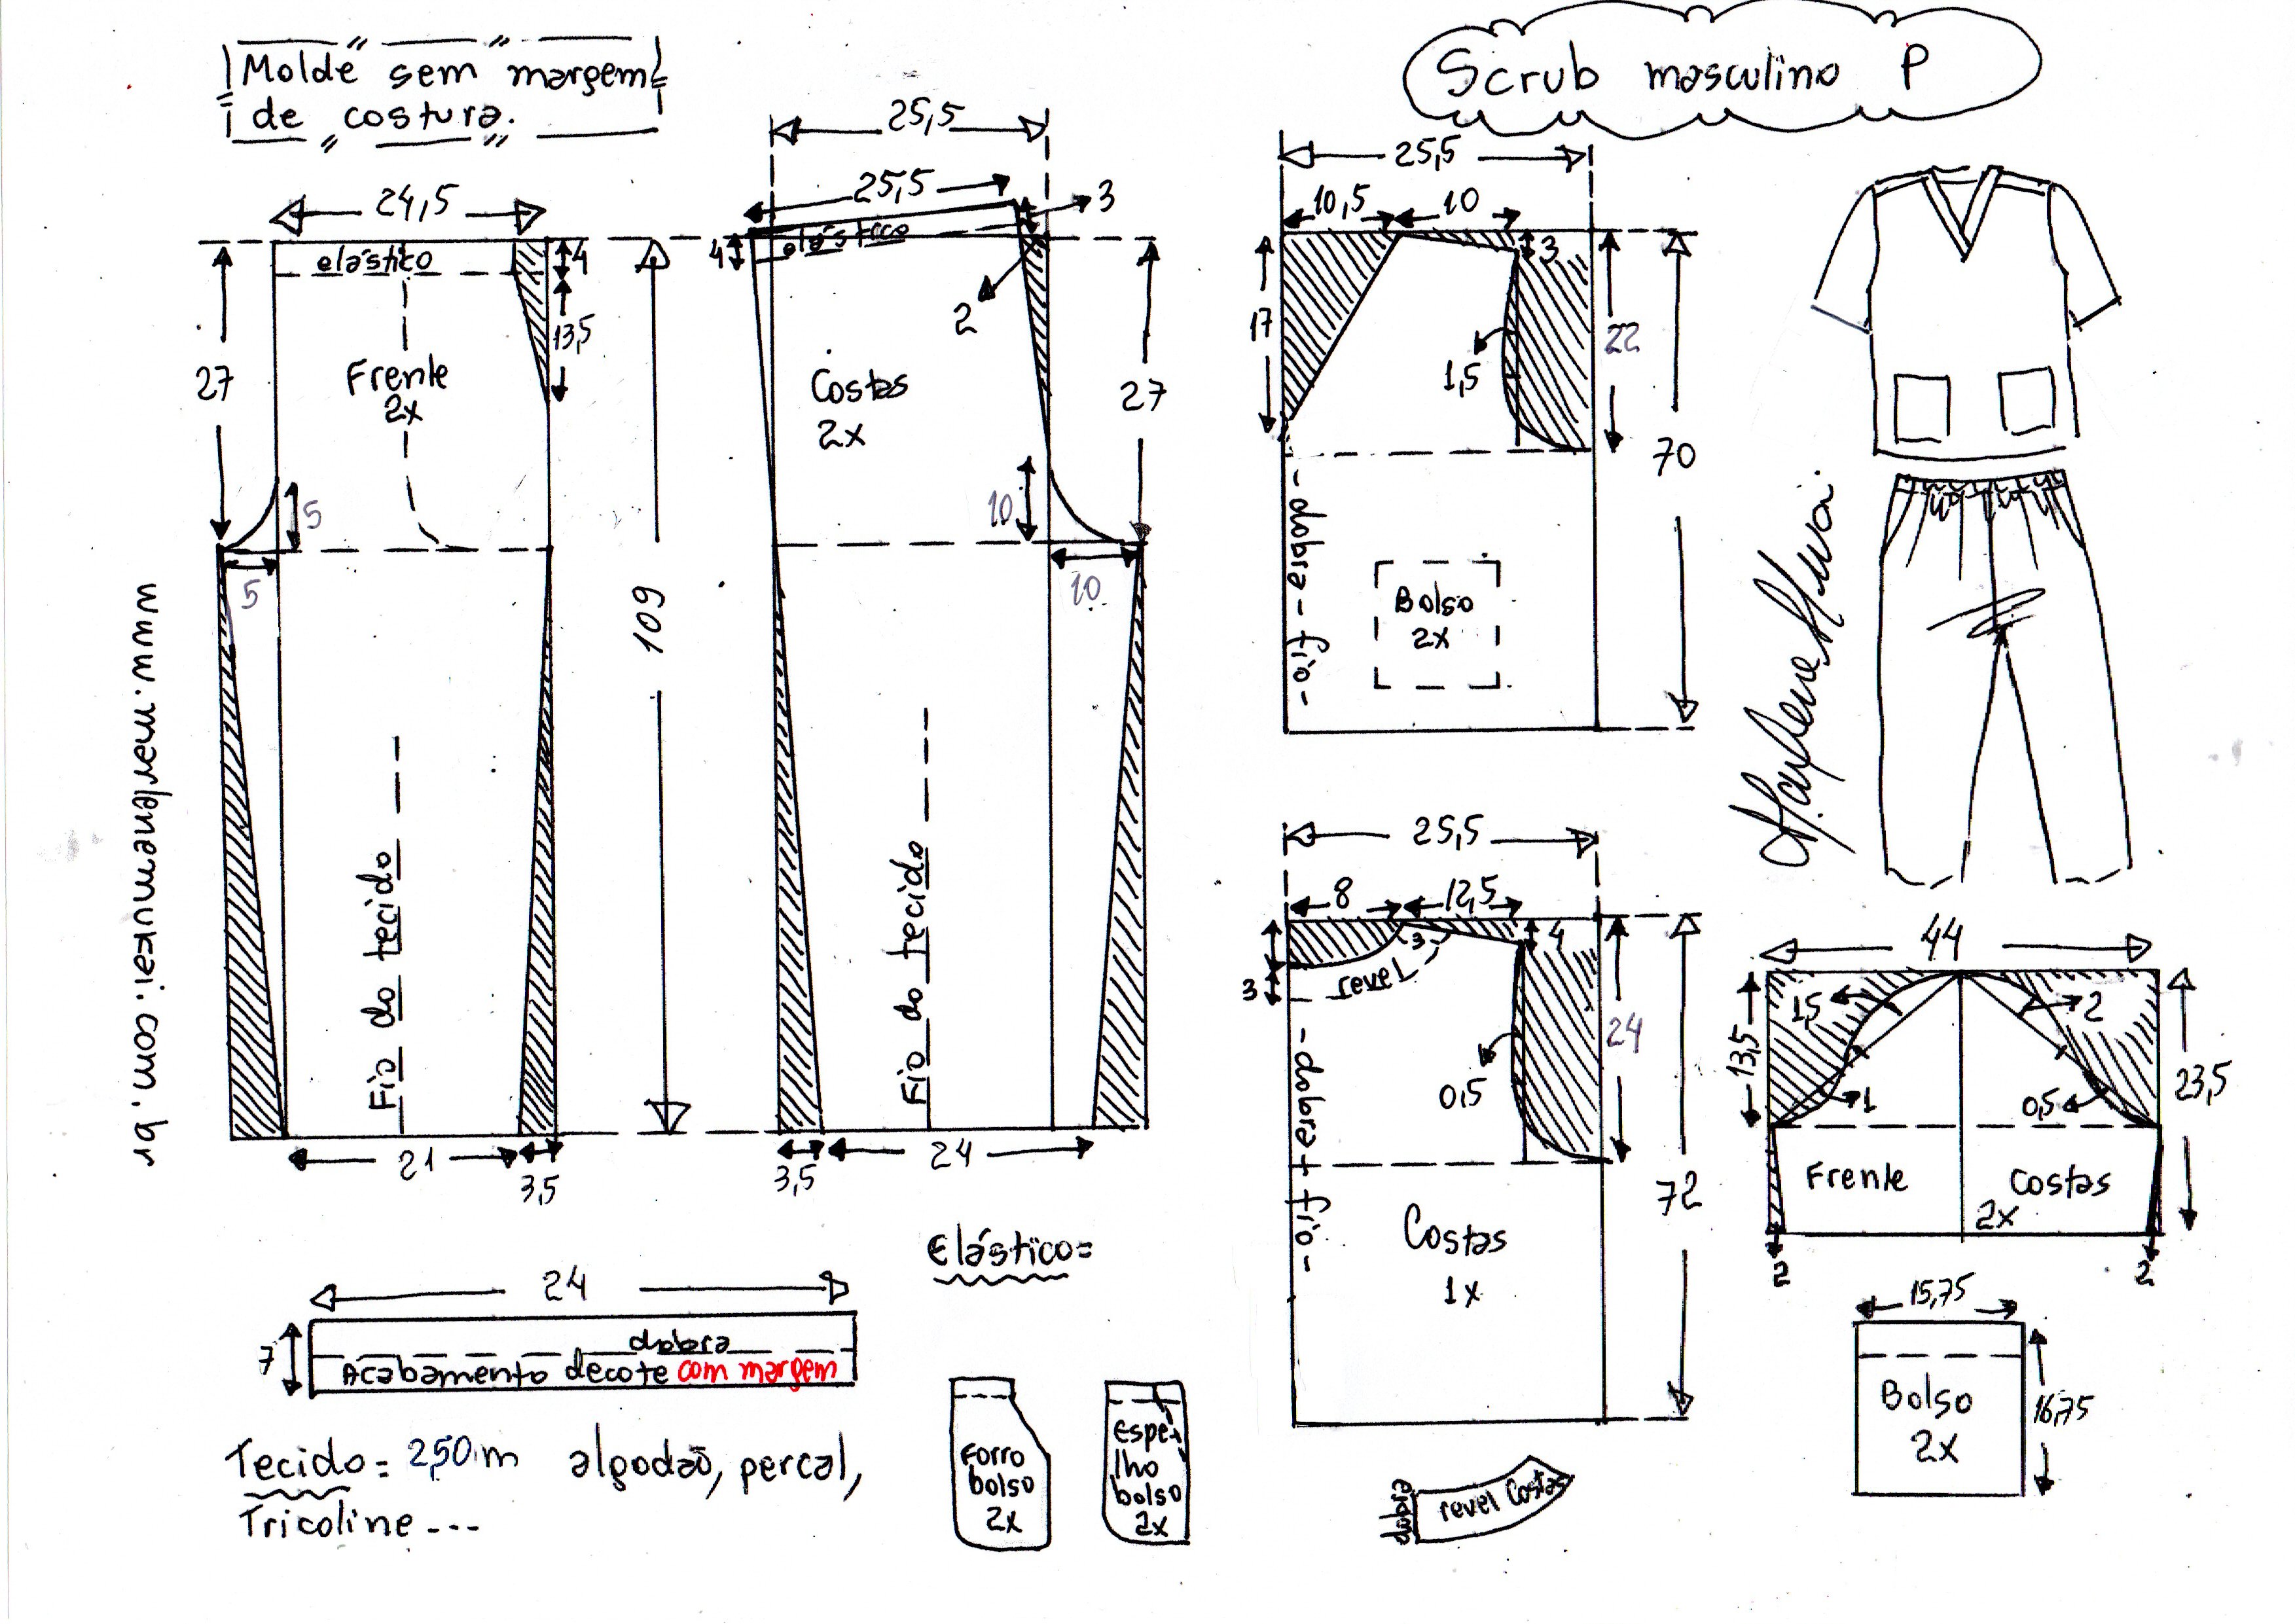 Molde sem margem
de costura.
Scrub masculino P
25,5
25,5
24,5
3
elástico
4
13,5
27
Frente
2x
5
5
109
Fio do tecido
21
3,5
www.marlenemukai.com.br
elástico
4
2
Costas
2x
27
10
10
Fio do tecido
3,5
24
25,5
10,5
10
3
17
1,5
22
70
-dobra-fio-
Bolso
2x
25,5
8
12,5
3
4
3
revel
0,5
24
72
-dobra+fio-
Costas
1x
44
1,5
2
13,5
23,5
1
0,5
Frente
Costas
2x
2
2
15,75
Bolso
2x
16,75
Elástico=
24
7
dobra
Acabamento decote com margem
Tecido= 2,50m algodão, percal,
Tricoline---
Forro
bolso
2x
Espe-
lho
bolso
2x
dobra
revel Costas